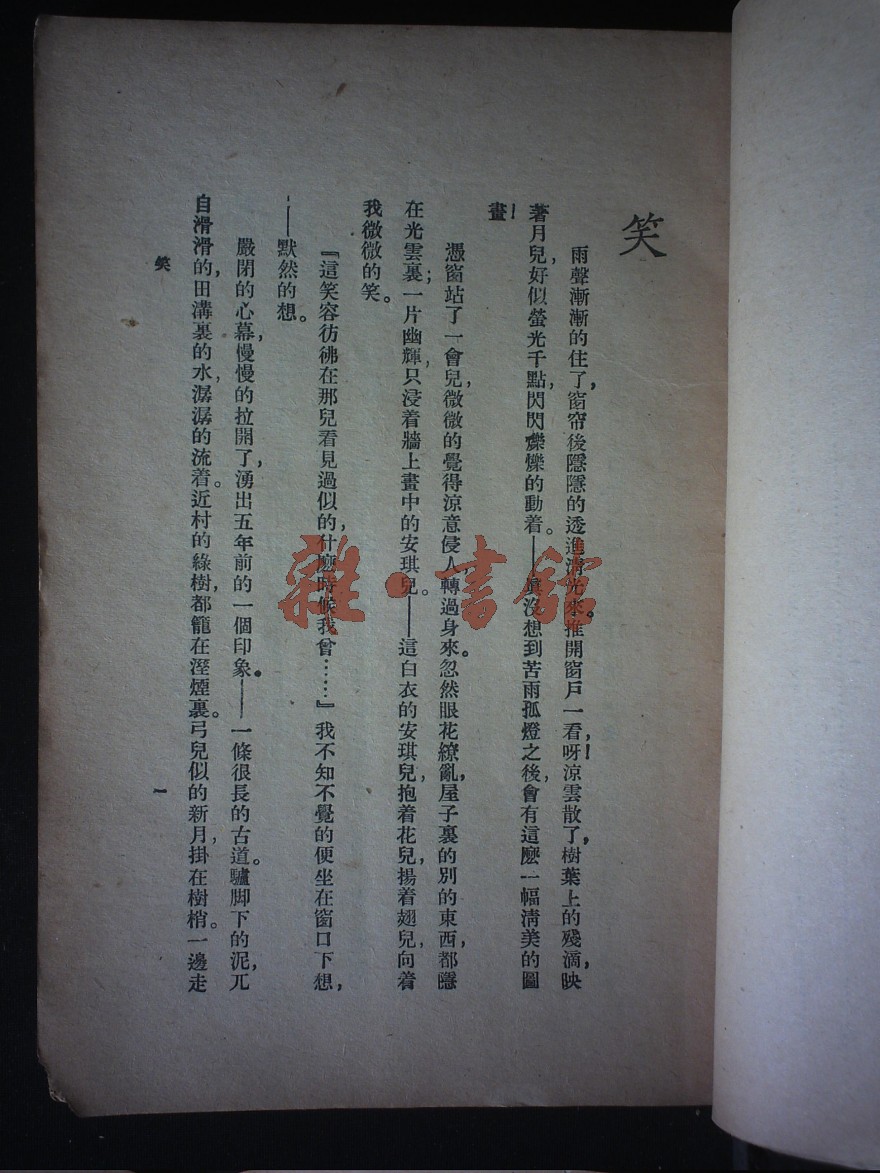 笑
雨聲漸漸的住了，窗帘後隱隱的透進清光來。推開窗戶一看，呀！涼雲散了，樹葉上的殘滴，映
著月兒，好似螢光千點，閃閃爍爍的動着。——眞沒想到苦雨孤燈之後，會有這麽一幅淸美的圖
畫！
憑窗站了一會兒，微微的覺得涼意侵人。轉過身來，忽然眼花繚亂，屋子裏的別的東西，都隱
在光雲裏；一片幽輝，只浸着牆上畫中的安琪兒。——這白衣的安琪兒，抱着花兒，揚着翅兒，向着
我微微的笑。
『這笑容彷彿在那兒看見過似的，什麽時候，我曾……』我不知不覺的便坐在窗口下想，
——默然的想。
嚴閉的心幕，慢慢的拉開了，湧出五年前的一個印象。——一條很長的古道。驢脚下的泥，兀
自滑滑的，田溝裏的水，潺潺的流着。近村的綠樹，都籠在溼煙裏。弓兒似的新月，掛在樹梢。一邊走
笑
一
雜·書館